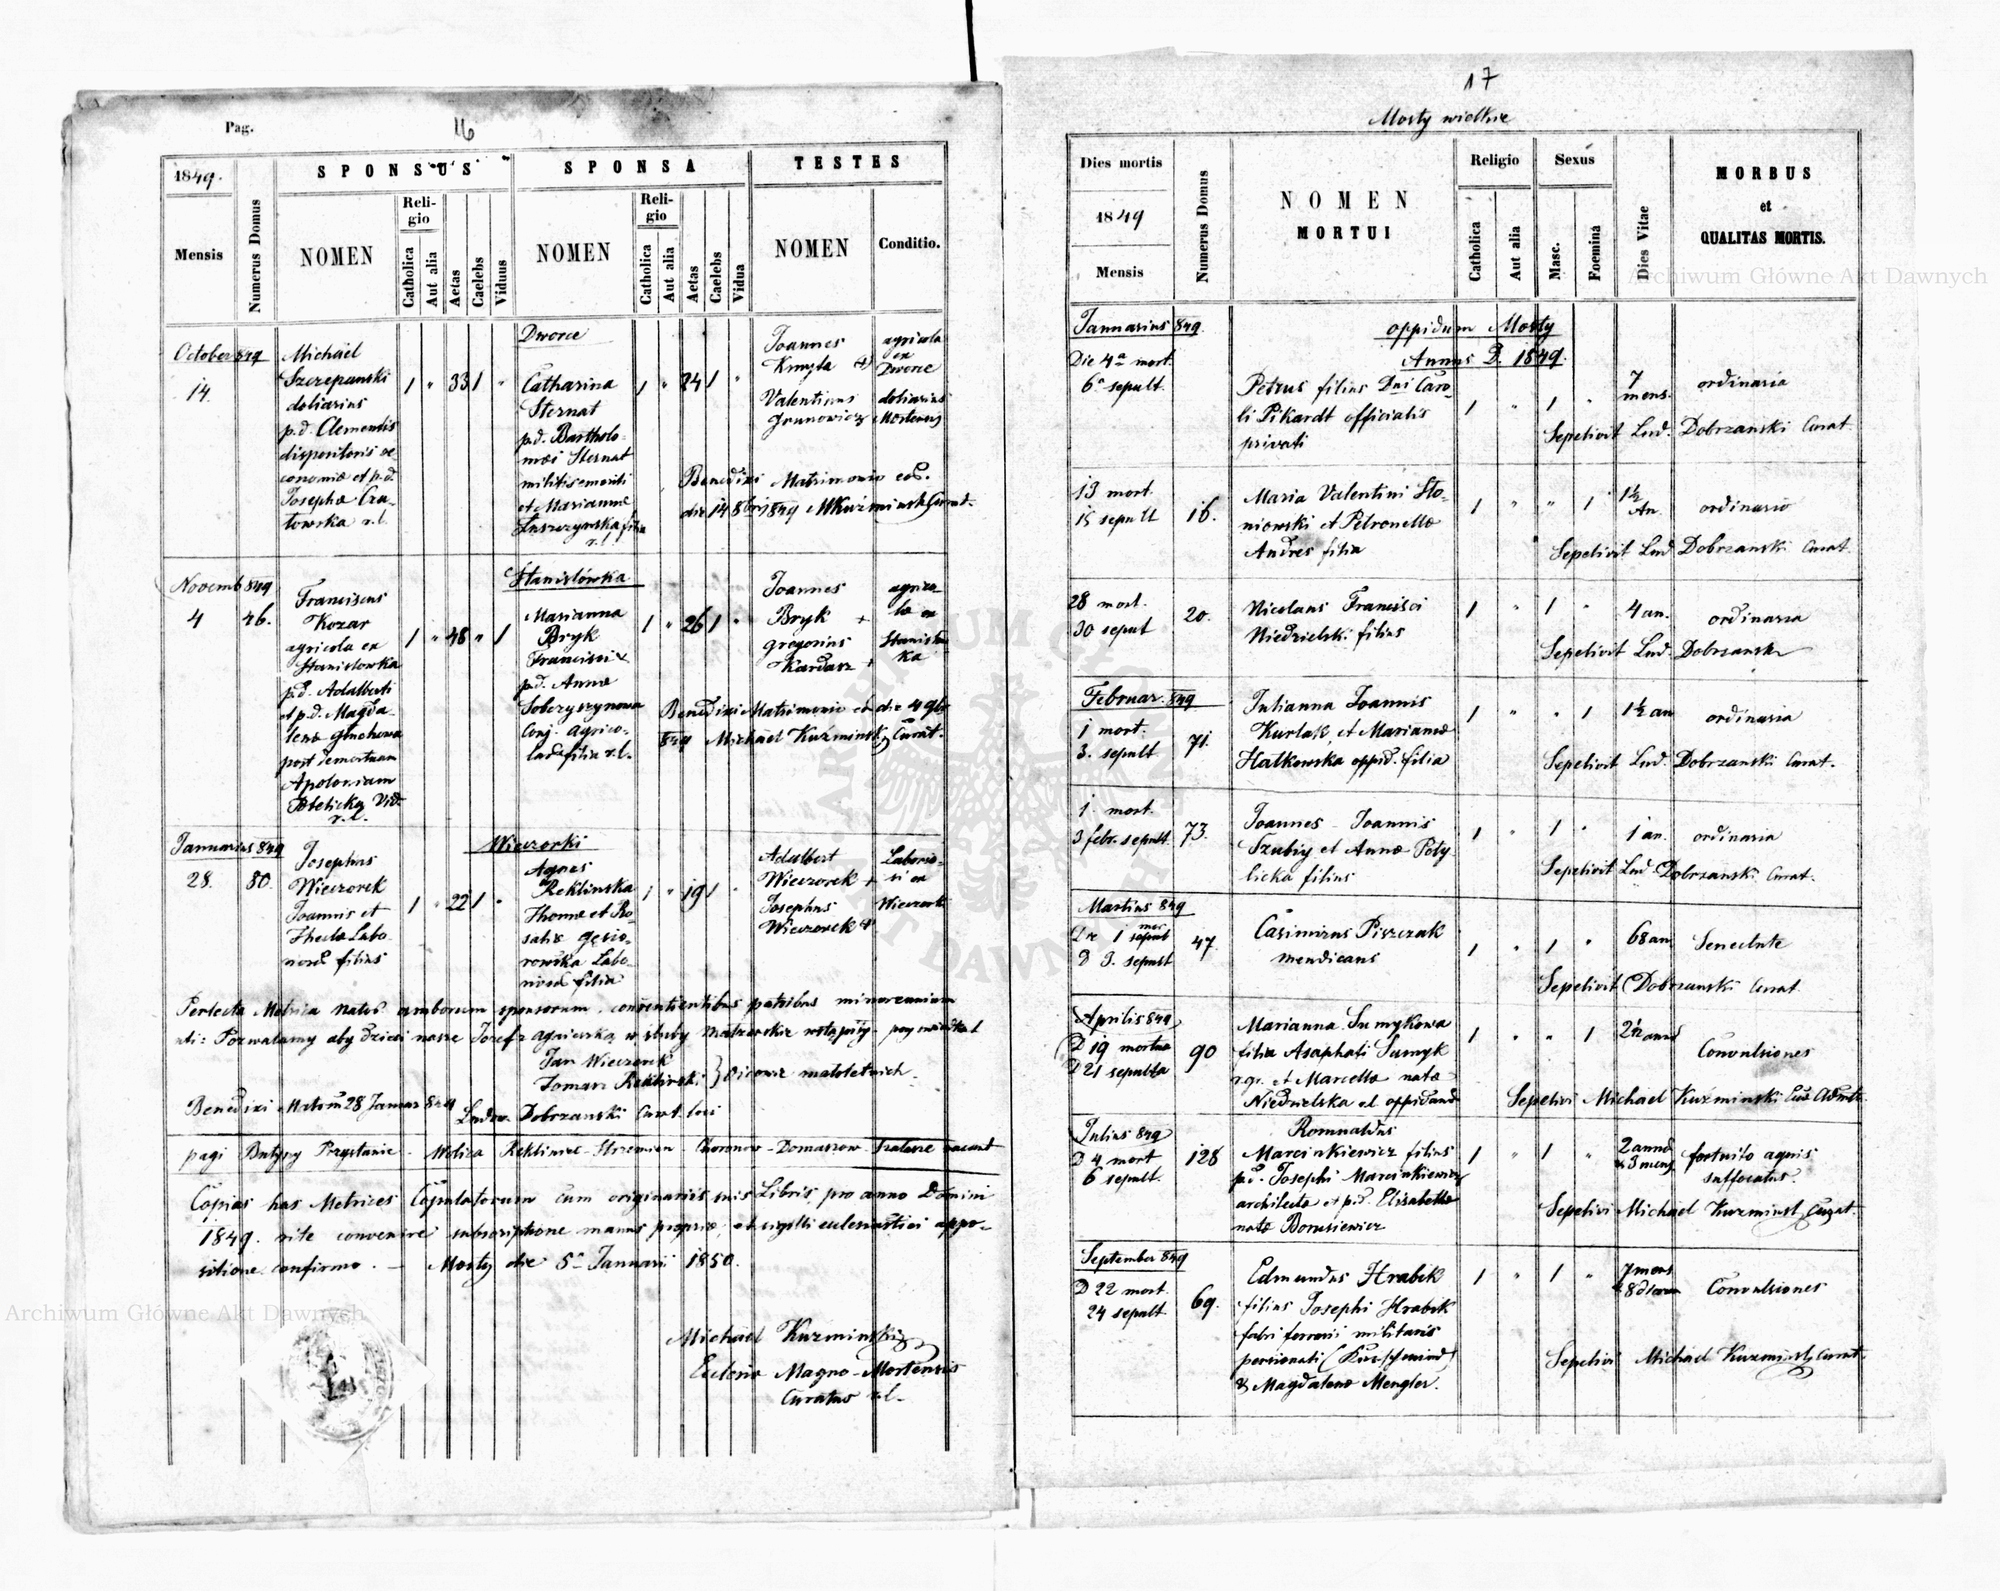 Pag.
16
1849.
Mensis
Numerus Domus
SPONSUS
NOMEN
Religio
Catholica
Aut alia
Aetas
Caelebs
Viduus
SPONSA
NOMEN
Religio
Catholica
Aut alia
Aetas
Caelebs
Vidua
TESTES
NOMEN
Conditio.
Dworce
October 849
14.
Michael
Szczepanski
doliarius
p.d. Clementis
dispositoris oe
conomiæ et p.d.
Josephæ
r.l.
1 " 33 1 "
Catharina
Sternat
p.d. Bartholo-
mæi Sternat
militis emeriti
et Mariannæ
filia
r.l.
1 " 24 1 "
Joannes
Kmyta
Valentinus
Grunowicz
agricola
ex
Dworce
doliarius
Benedixi Matrimonio eod.
die 14 8bris 849 MKuźminski Curat.
Novemb 849
4
46.
Stanislówka
Franciscus
Kozar
agricola ex
Stanislowka
p.d. Adalberti
et p.d. Magda-
lenæ
post demortuam
Apoloniam
Vid.
r.l.
1 " 48 " 1
Marianna
Bryk
Francisci &
p.d. Annæ
Sobczyszynowa
Conj. agrico-
filia r.l.
1 " 26 1 "
Joannes
Bryk +
Gregorius
Kardasz +
agrico-
la ex
Stanislo-
ka
Benedixi Matrimonio eod die 4 9br
849 Michael Kuźminski Curat.
Wieczorki
Januarius 849
28.
80.
Josephus
Wieczorek
Joannis et
Theclæ Labo
filius
1 " 22 1 "
Agnes
Reklinska
Thomæ et Ro-
saliæ
Labo-
filia
1 " 19 1 "
Adalbert
Wieczorek +
Josephus
Wieczorek +
Laborio-
si ex
Wieczorki
Perlecta Metrica natos amborum sponsorum, consentientibus patribus
Pozwalamy aby dzieci nasze Józef z Agnieszką w śluby małżeńskie wstąpiły
Jan Wieczorek
Tomasz Reklinski } oicowie małoletnich.
Benedixi Matrim 28 Januar 849
Ludov. Dobrzanski Curat. loci
pagi Butyny Przystanie - Wolica Reklinec - Strzemien - Choronow - Domaszow vacant
Copias has Metrices Copulatorum cum originariis suis Libris pro anno Domini
1849. rite convenire subscriptione manus propriæ, et sigilli ecclesiastici appo-
sitione confirmo. - Mosty die 5a Januarii 1850.
Michael Kuzminski
Ecclesiæ Magno-Mostensis
Curatus r.l.
17
Mosty wielkie
Dies mortis
1849
Mensis
Numerus Domus
NOMEN
MORTUI
Religio
Catholica
Aut alia
Sexus
Masc.
Foemina
Dies Vitae
MORBUS
et
QUALITAS MORTIS.
Januarius 849.
oppidum Mosty
Annus D. 1849.
Die 4a mort.
6a sepult.
Petrus filius Dni Caro-
li Pikardt officialis
privati
1 " 1 "
7
mens.
ordinaria
Sepelivit Lud. Dobrzanski Curat.
13 mort.
15 sepult
16.
Maria Valentini Sto-
niowski et Petronellæ
Andres filia
1 " " 1
1½
An.
ordinario
Sepelivit Lud Dobrzanski Curat.
28 mort.
30 sepult
20.
Nicolaus Francisci
Niedzielski filius
1 " 1 "
4 an.
ordinaria
Sepelivit Lud. Dobrzanski
Februar. 849
1 mort.
3. sepult
71.
Julianna Joannis
Kurlak, et Mariannæ
Halkowska oppid. filia
1 " " 1
1½ an
ordinaria
Sepelivit Lud. Dobrzanski Curat.
1. mort.
3 febr. sepult
73.
Joannes Joannis
Szubiy et Annæ Poty
licka filius
1 " 1 "
1 an.
ordinaria
Sepelivit Lud. Dobrzanski Curat.
Martius 849
Die 1 mor
D 3. sepult
47
Casimirus Piszczak
mendicans
1 " 1 "
68 an
Senectute
Sepelivit Dobrzanski Curat
Aprilis 849
D 19 mortua
D 21 sepulta
90
Marianna Sumykowa
filia Asaphati Sumyk
r.gr. et Marcellæ natæ
Niedzielska
1 " " 1
Convulsiones
Sepelivi Michael Kuźminski
Julius 849
D 4 mort
6 sepult.
128
Romualdus
Marcinkiewicz filius
p.d. Josephi Marcinkiewicz
architecta et p.d. Elisabethæ
natæ Borusiewicz
1 " 1 "
2 anno
& 3 mens.
fortuito aquis
suffocatus.
Sepelivi Michael Kuzminski Curat.
September 849
D 22 mort.
24 sepult.
69.
Edmundus Hrabik
filius Josephi Hrabik
fabri ferrarii militaris
pensionati (Kurschmied)
& Magdalenæ Mengler.
1 " 1 "
7 mens
& 8 dierum
Convulsiones
Sepelivi Michael Kuzminski Curat.
Archiwum Główne Akt Dawnych
Archiwum Główne Akt Dawnych
ARCHIWUM GŁÓWNE AKT DAWNYCH